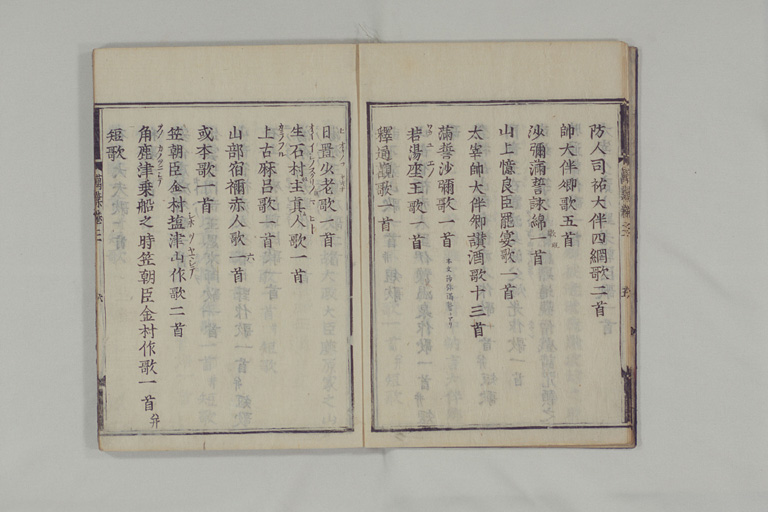 防人司祐大伴四綱歌二首
帥大伴卿歌五首
沙彌滿誓詠綿一首
山上憶良臣罷宴歌一首
太宰帥大伴卿讃酒歌十三首
滿誓沙彌歌一首
若湯座王歌一首
釋通觀歌一首
日置少老歌一首
生石村主真人歌一首
上古麻呂歌一首
山部宿禰赤人歌一首
或本歌一首
笠朝臣金村塩津山作歌二首
角鹿津乗船之時笠朝臣金村作歌一首并
短歌
六